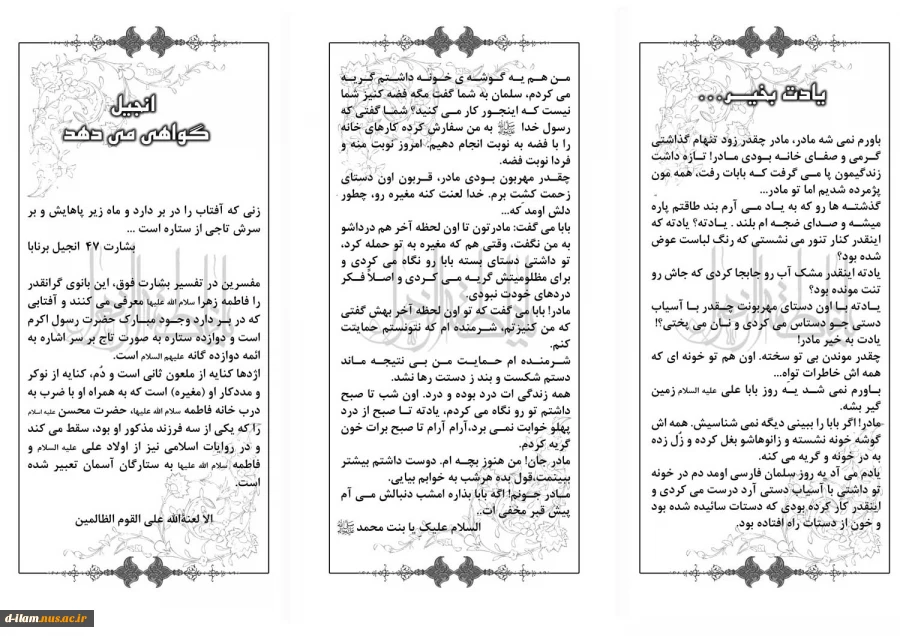 یادت بخیر...
باورم نمی شه مادر، مادر چقدر زود تنهام گذاشتی
گرمی و صفای خانه بودی مادر! تازه داشت
زندگیمون پا می گرفت که بابات رفت، همه مون
پژمرده شدیم اما تو مادر...
گذشته ها رو که به یاد می آرم بند طاقتم پاره
میشه و صدای ضجه ام بلند . یادته؟ یادته که
اینقدر کنار تنور می نشستی که رنگ لباست عوض
شده بود؟
یادته اینقدر مشک آب رو جابجا کردی که جاش رو
تنت مونده بود؟
یادته با اون دستای مهربونت چقدر با آسیاب
دستی جو دستاس می کردی و نان می پختی؟!
یادت به خیر مادر!
چقدر موندن بی تو سخته. اون هم تو خونه ای که
همه اش خاطرات تواِه...
باورم نمی شد یه روز بابا علی علیه السلام زمین
گیر بشه.
مادر! اگر بابا را ببینی دیگه نمی شناسیش. همه اش
گوشه خونه نشسته و زانوهاشو بغل کرده و زُل زده
به در خونه و گریه می کنه.
یادم می آد یه روز سلمان فارسی اومد دم در خونه
تو داشتی با آسیاب دستی آرد درست می کردی و
اینقدر کار کرده بودی که دستات سائیده شده بود
و خون از دستات راه افتاده بود.
من هم یه گوشه ی خونه داشتم گریه
می کردم، سلمان به شما گفت مگه فضه کنیز شما
نیست که اینجور کار می کنید؟ شما گفتی که
رسول خدا ﷺ به من سفارش کرده کارهای خانه
را با فضه به نوبت انجام دهیم. امروز نوبت منه و
فردا نوبت فضه.
چقدر مهربون بودی مادر، قربون اون دستای
زحمت کشت برم. خدا لعنت کنه مغیره رو، چطور
دلش اومد که...
بابا می گفت: مادرتون تا اون لحظه آخر هم درداشو
به من نگفت، وقتی هم که مغیره به تو حمله کرد،
تو داشتی دستای بسته بابا رو نگاه می کردی و
برای مظلومیتش گریه می کردی و اصلاً فکر
دردهای خودت نبودی.
مادر! بابا می گفت که تو اون لحظه آخر بهش گفتی
که من کنیزتم، شرمنده ام که نتونستم حمایتت
کنم.
شرمنده ام حمایت من بی نتیجه ماند
دستم شکست و بند ز دستت رها نشد.
همه زندگی ات درد بوده و درد. اون شب تا صبح
داشتم تو رو نگاه می کردم، یادته تا صبح از درد
پهلو خوابت نمی برد، آرام آرام تا صبح برات خون
گریه کردم.
مادر جان! من هنوز بچه ام. دوست داشتم بیشتر
ببینمت، قول بده هرشب به خوابم بیایی.
مادر جونم! اگه بابا بذاره امشب دنبالش می آم
پیش قبر مخفی ات..
السلام علیکِ یا بنت محمد ﷺ
انجیل
گواهی می دهد
زنی که آفتاب را در بر دارد و ماه زیر پاهایش و بر
سرش تاجی از ستاره است ...
بشارت ۴۷ انجیل برنابا
مفسرین در تفسیر بشارت فوق، این بانوی گرانقدر
را فاطمه زهرا سلام الله علیها معرفی می کنند و آفتابی
که در بر دارد وجود مبارک حضرت رسول اکرم
است و دوازده ستاره به صورت تاج بر سر اشاره به
ائمه دوازده گانه علیهم السلام است.
اژدها کنایه از ملعون ثانی است و دُم، کنایه از نوکر
و مددکار او (مغیره) است که به همراه او با ضرب به
درب خانه فاطمه سلام الله علیها، حضرت محسن علیه السلام
را که یکی از سه فرزند مذکور او بود، سقط می کند
و در روایات اسلامی نیز از اولاد علی علیه السلام و
فاطمه سلام الله علیها به ستارگان آسمان تعبیر شده
است.
الا لعنةالله علی القوم الظالمین
d-ilam.nus.ac.ir